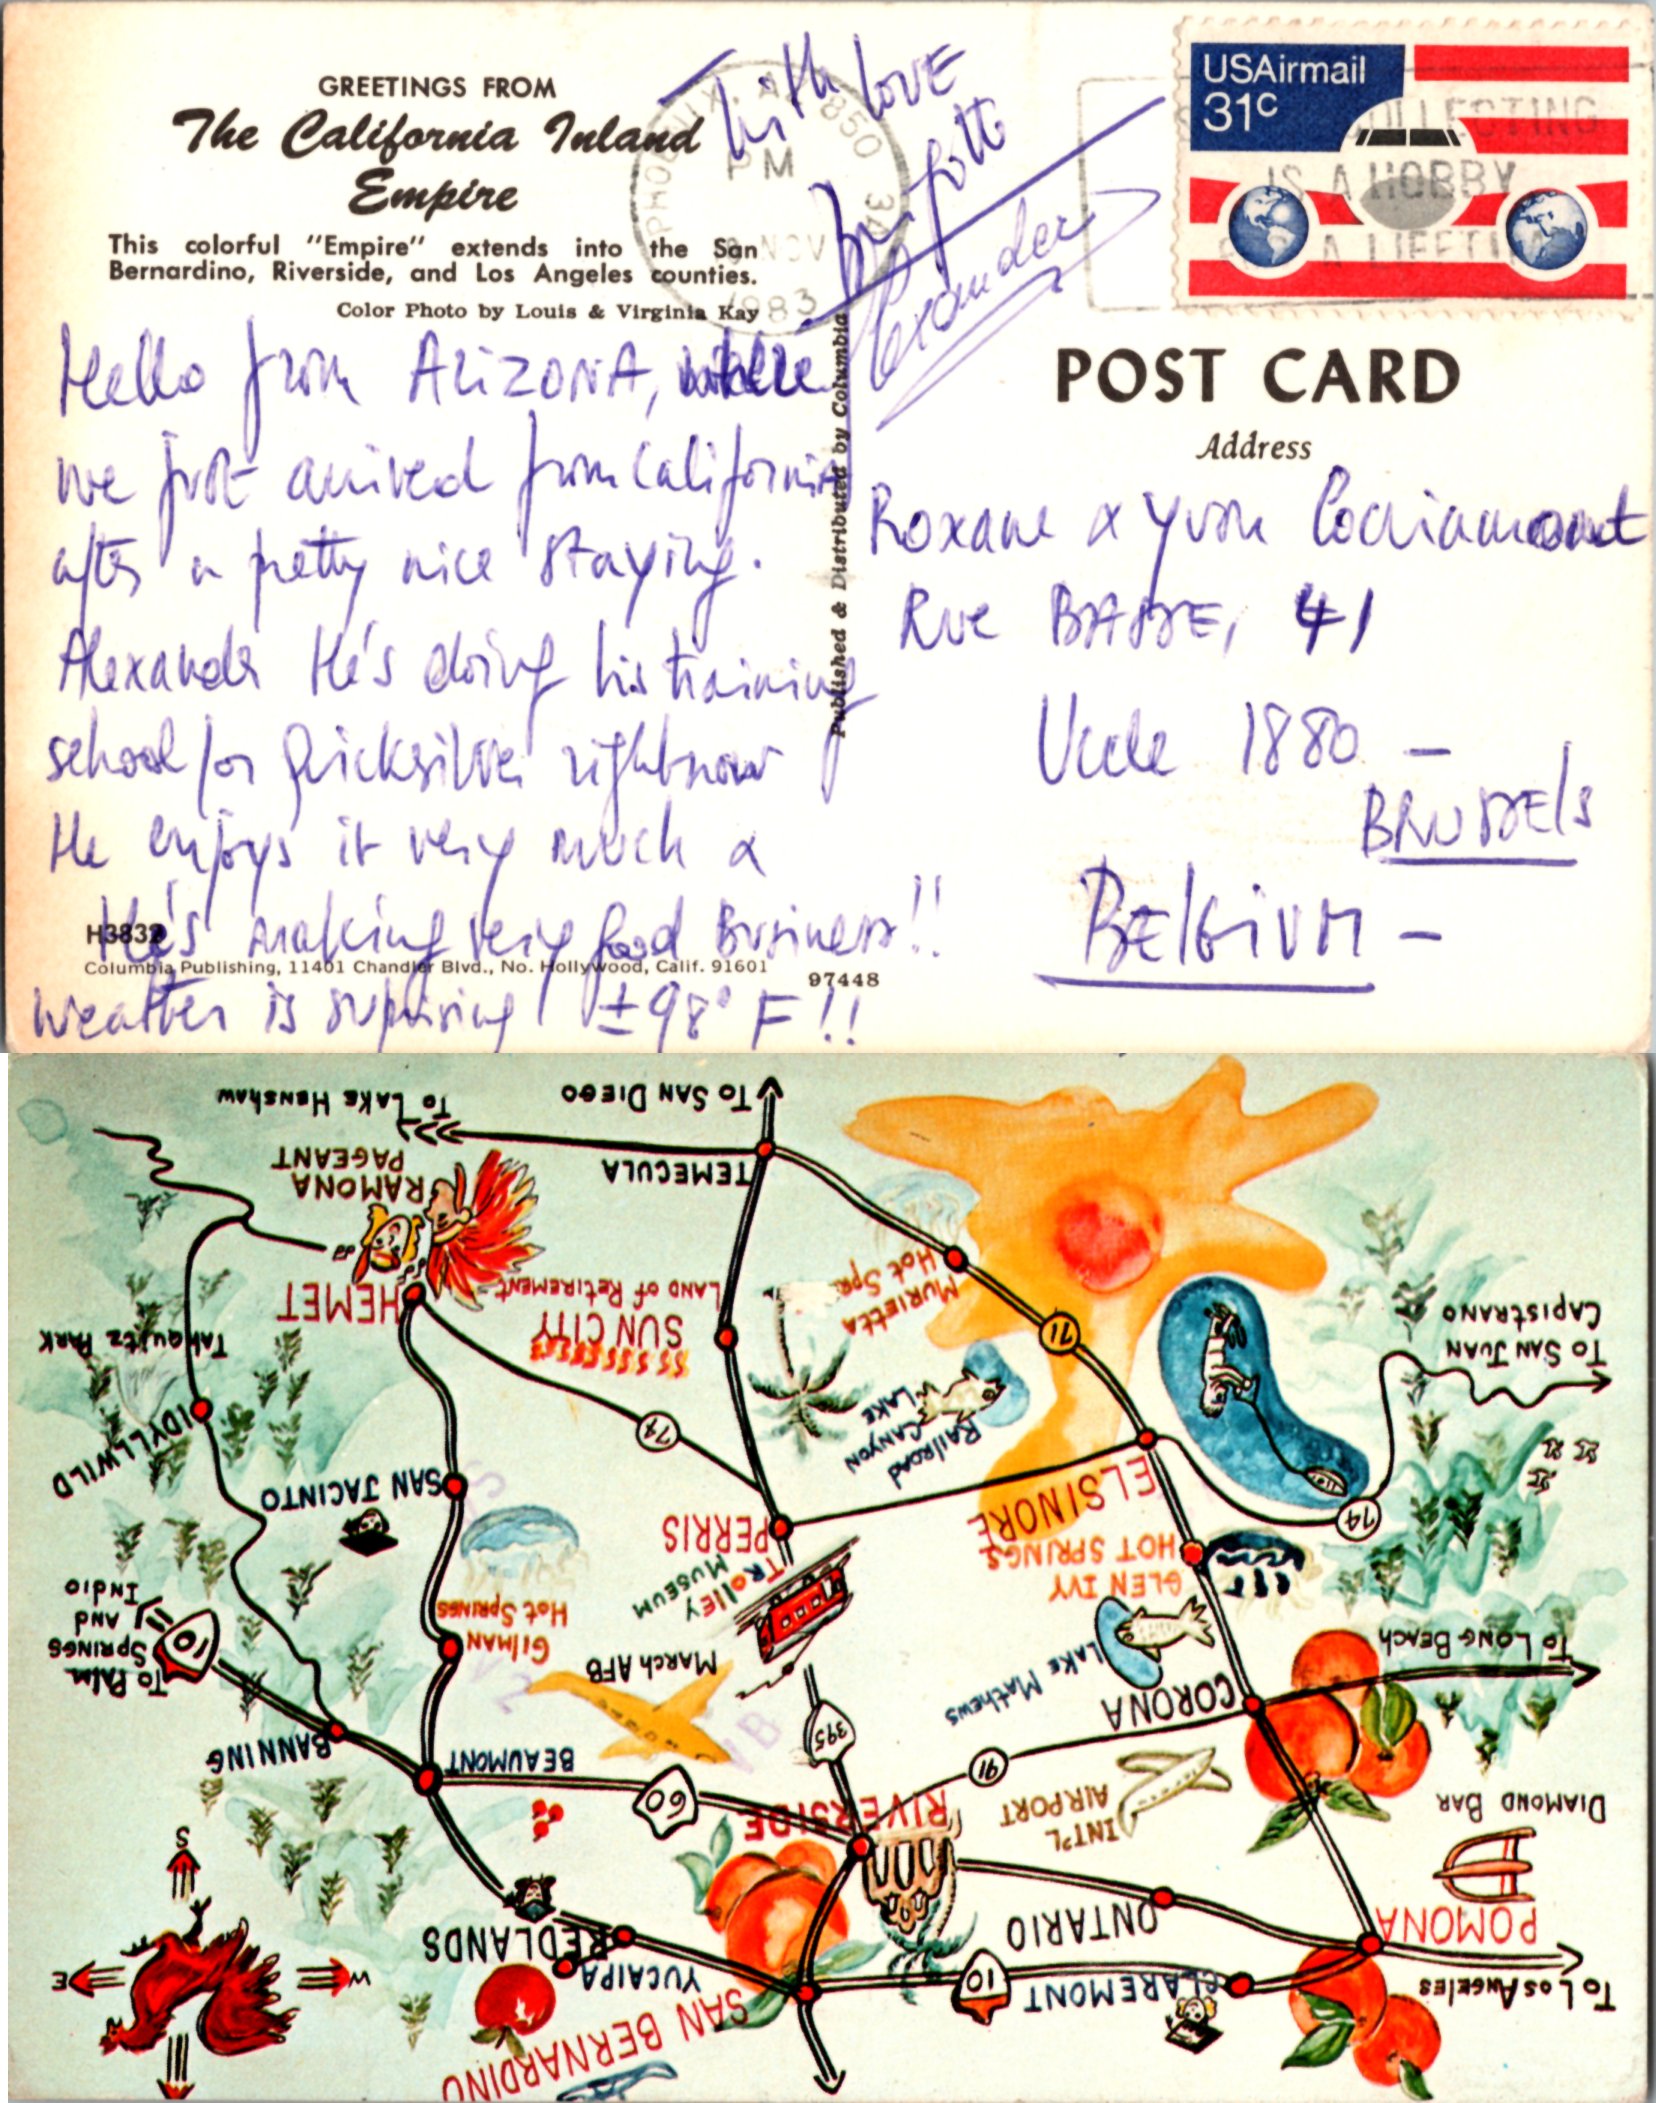 GREETINGS FROM
The California Inland
Empire
This colorful "Empire" extends into the San
Bernardino, Riverside, and Los Angeles counties.
Color Photo by Louis & Virginia Kay
With love
Alexander
PHOENIX, AZ 850
PM
NOV
1983
USAirmail
31c
COLLECTING
IS A HOBBY
A LIFETIME
POST CARD
Address
Published & Distributed by Columbia
Hello from ARIZONA, where
we just arrived from California
after a pretty nice staying.
Alexander He's doing his training
school for Quicksilver right now
He enjoys it very much &
He's making very good Business!!
weather is suprising ±98° F!!
Roxane & Yvon
Rue BASSE, 41
Uccle 1880 -
BRUSSEls
BElGiUM -
H3832
Columbia Publishing, 11401 Chandler Blvd., No. Hollywood, Calif. 91601
97448
To Lake Henshaw
To SAN DIEGO
RAMONA
PAGEANT
TEMECULA
HEMET
SUN CITY
LAND of RETIREMENT
MURIETTA
Hot Spr.
71
To SAN JUAN
CAPISTRANO
Tahquitz PARK
IDYLLWILD
74
RAILROAD
CANYON
LAKE
SAN JACINTO
PERRIS
ELSINORE
74
GLEN IVY
HOT SPRINGS
TROLLEY
MUSEUM
GILMAN
Hot SPRINGS
To PALM
SPRINGS
AND
INDIO
10
MARCH AFB
LAKE MATHEWS
CORONA
To LONG BEACH
BANNING
BEAUMONT
395
91
60
RIVERSIDE
INT'L
AIRPORT
DIAMOND BAR
REDLANDS
YUCAIPA
ONTARIO
POMONA
10
CLAREMONT
To Los ANGELES
SAN BERNARDINO
S
E
W